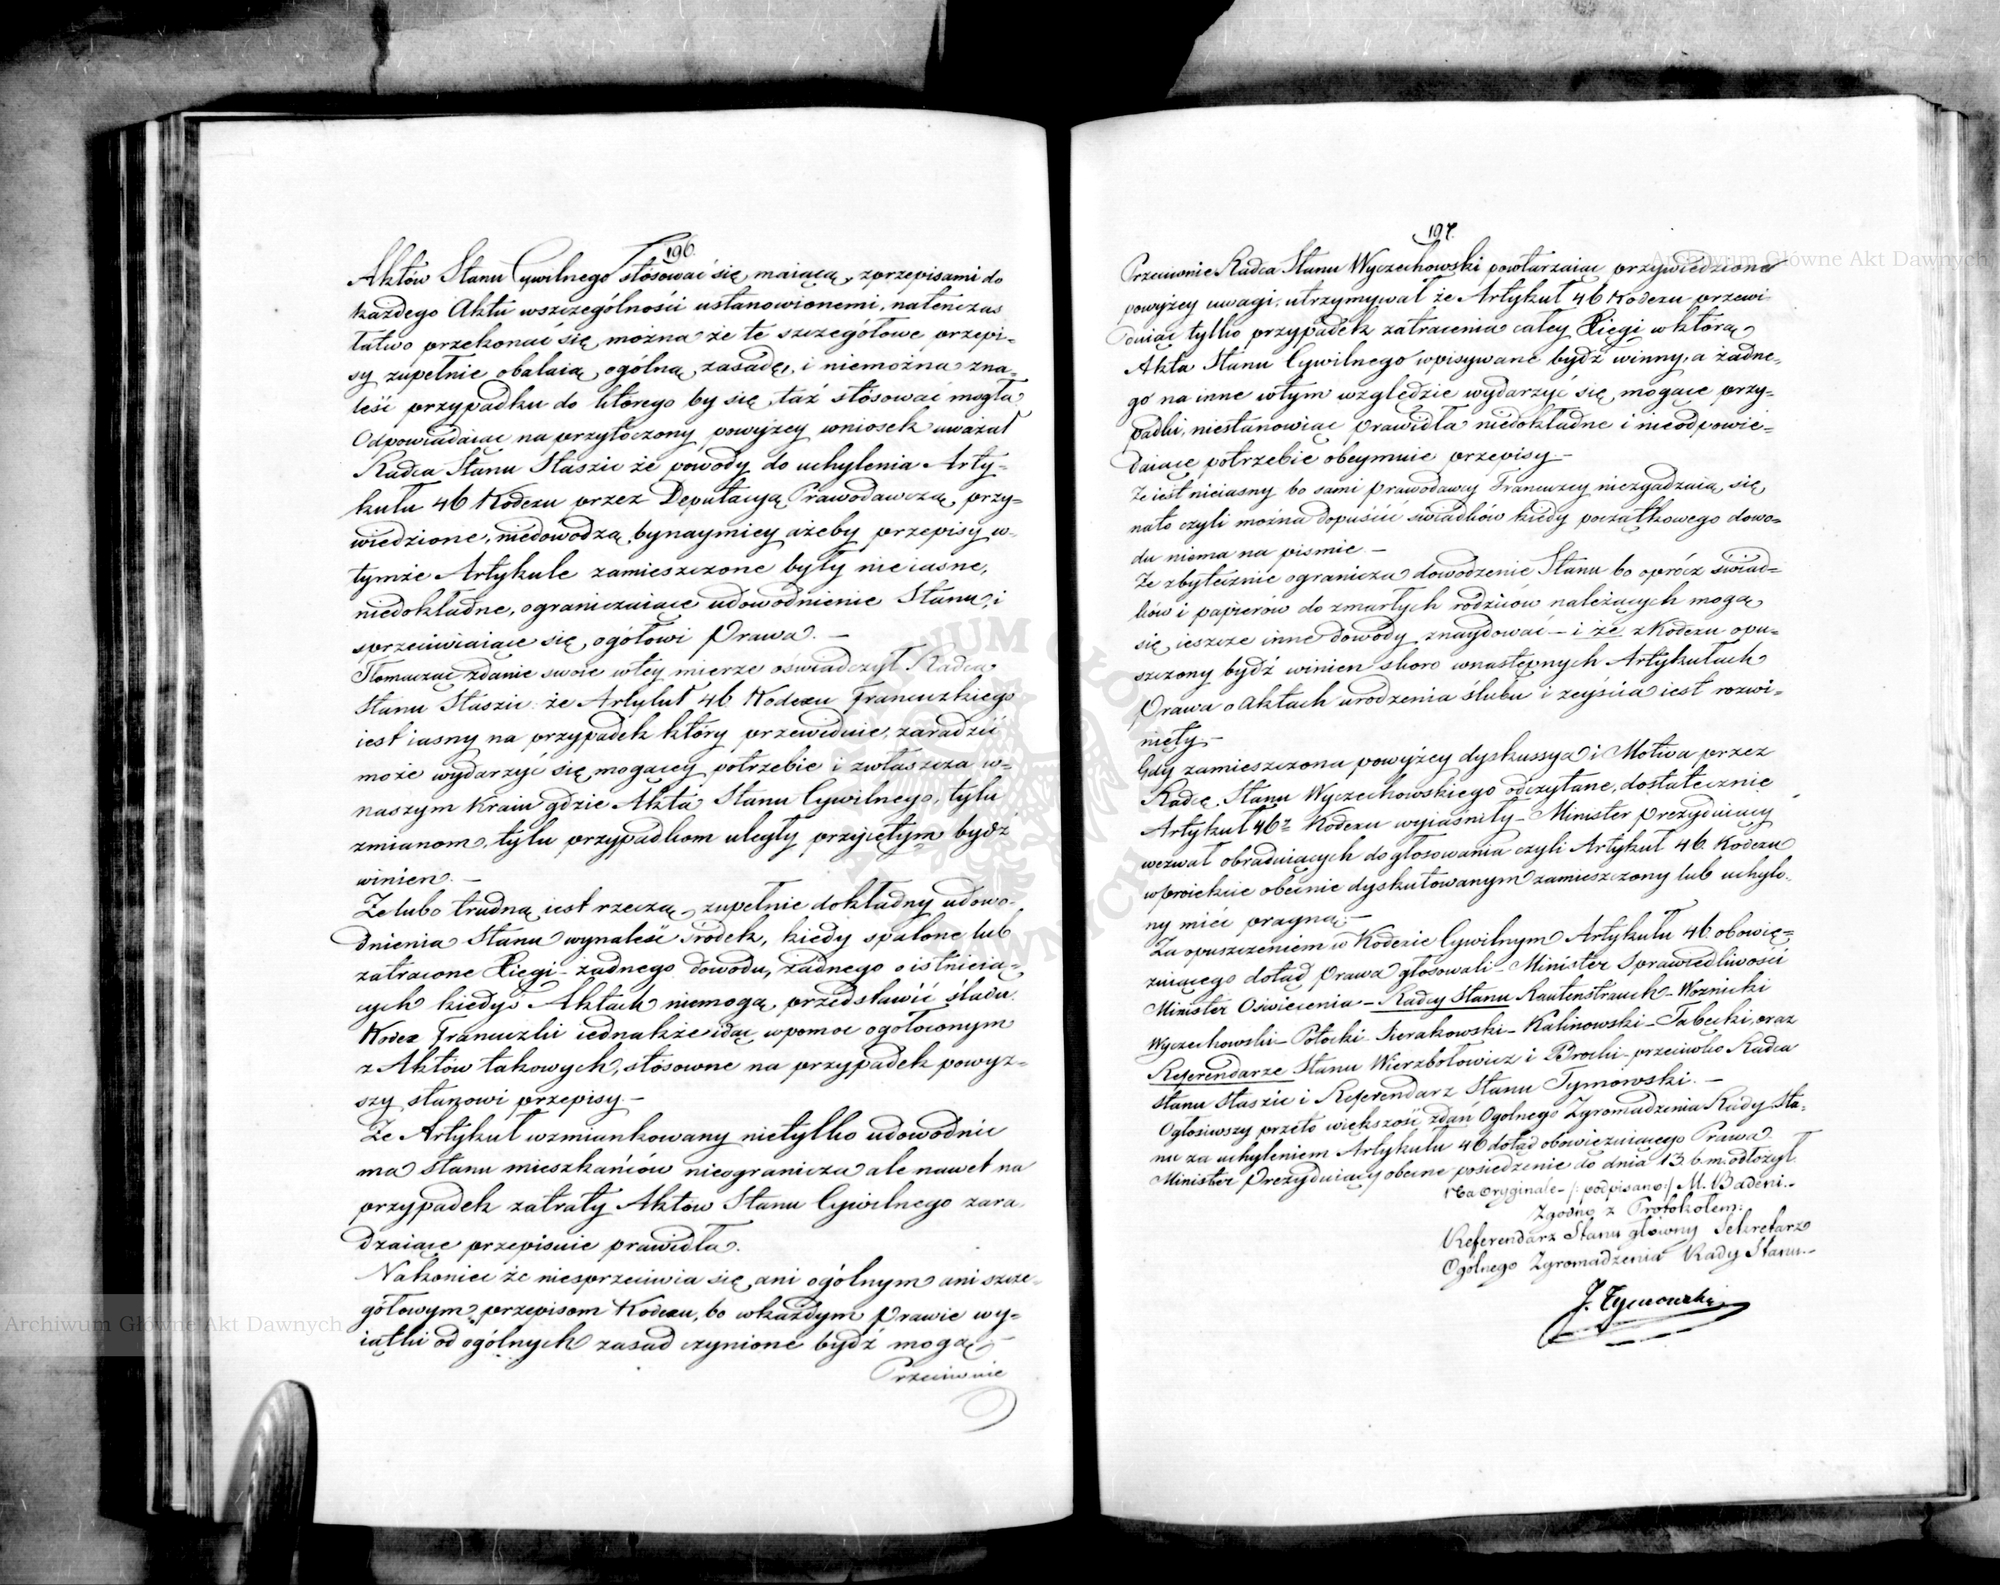 196.
Aktów Stanu Cywilnego stósować się maiącą, z przepisami do
każdego Aktu wszczególności ustanowionemi, natenczas
łatwo przekonać się można że te szczegółowe przepi-
sy zupełnie obalaią ogólną zasadę, i niemożna zna-
leść przypadku do którego by się taż stósować mogła
Odpowiadaiąc na przytoczony powyżey wniosek uważał
Radca Stanu Staszic że powody do uchylenia Arty-
kułu 46 Kodexu przez Deputacyą Prawodawczą przy-
wiedzione, niedowodzą bynaymniey ażeby przepisy w-
tymże Artykule zamieszczone były nieiasne,
niedokładne, ograniczaiące udowodnienie Stanu, i
sprzeciwiaiące się ogółowi Prawa. —
Tłomacząc zdanie swoie wtey mierze oświadczył Radca
Stanu Staszic: że Artykuł 46 Kodexu Francuzkiego
iest iasny na przypadek który przewiduie, zaradzić
może wydarzyć się mogącey potrzebie i zwłaszcza w-
naszym Kraiu gdzie Akta Stanu Cywilnego, tylu
zmianom, tylu przypadkom uległy przyiętym bydź
winien. —
Że lubo trudną iest rzeczą zupełnie dokładny udowo-
dnienia Stanu wynaleść środek, kiedy spalone lub
zatracone Xięgi żadnego dowodu, żadnego o istnieią-
cych kiedyś Aktach niemogą przedstawić śladu.
Kodex Francuzki iednakże idąc w pomoc ogołoconym
z Aktów takowych, stósowne na przypadek powyż-
szy stanowi przepisy. —
Że Artykuł wzmiankowany nietylko udowodnie
nia stanu mieszkańców nieogranicza ale nawet na
przypadek zatraty Aktów Stanu Cywilnego zara-
dzaiące przepisuie prawidła.
Nakoniec że niesprzeciwia się ani ogólnym ani szcze-
gółowym przepisom Kodexu, bo wkażdym Prawie wy-
iątki od ogólnych zasad czynione bydź mogą —
Przeciwnie
197.
Przeciwnie Radca Stanu Wyczechowski powtarzaiąc przywiedzione
powyżey uwagi, utrzymywał że Artykuł 46 Kodexu przewi-
duiąc tylko przypadek zatracenia całey Xięgi wktórą
Akta Stanu Cywilnego wpisywane bydź winny, a żadne-
go na inne wtym względzie wydarzyć się mogące przy-
padki, niestanowiąc prawidła niedokładne i nieodpowie-
daiące potrzebie obeymuie przepisy —
Że iest nieiasny bo sami Prawodawcy Francuzcy niezgadzaią się
nato czyli można dopuścić świadków kiedy początkowego dowo-
du niema na pismie. —
Że zbytecznie ogranicza dowodzenie Stanu bo oprócz świad-
ków i papierów do zmarłych rodziców należących mogą
się ieszcze inne dowody znaydować — i że z Kodexu opu-
szczony bydź winien skoro wnastępnych Artykułach
Prawa o Aktach urodzenia ślubu i zeyścia iest rozwi-
nięty —
Gdy zamieszczona powyżey dyskussya i Motiva przez
Radcę Stanu Wyczechowskiego odczytane, dostatecznie
Artykuł 46 Kodexu wyiasniły — Minister Prezyduiący
wezwał obraduiących do głosowania czyli Artykuł 46 Kodexu
w proiekcie obecnie dyskutowanym zamieszczony lub uchylo-
ny mieć pragną —
Za opuszczeniem w Kodexie Cywilnym Artykułu 46 obowię-
zuiącego dotąd Prawa głosowali — Minister Sprawiedliwości
Minister Oświecenia — Radcy Stanu Rautenstrauch — Woznicki
Wyczechowski — Potocki — Sierakowski — Kalinowski — Tabęcki, oraz
Referendarze Stanu Wierzbołowicz i Brocki — przeciwko Radca
Stanu Staszic i Referendarz Stanu Tymowski. —
Ogłosiwszy przeto większość zdań Ogólnego Zgromadzenia Rady Sta-
nu za uchyleniem Artykułu 46 dotąd obowiązuiącego Prawa
Minister Prezyduiący obecne posiedzenie do dnia 13 b. m. odłożył.
Na Oryginale — /: podpisano :/ M. Badeni. —
Zgodno z Protokołem:
Referendarz Stanu główny Sekretarz
Ogólnego Zgromadzenia Rady Stanu. —
J. Tymowski
Archiwum Główne Akt Dawnych
Archiwum Główne Akt Dawnych